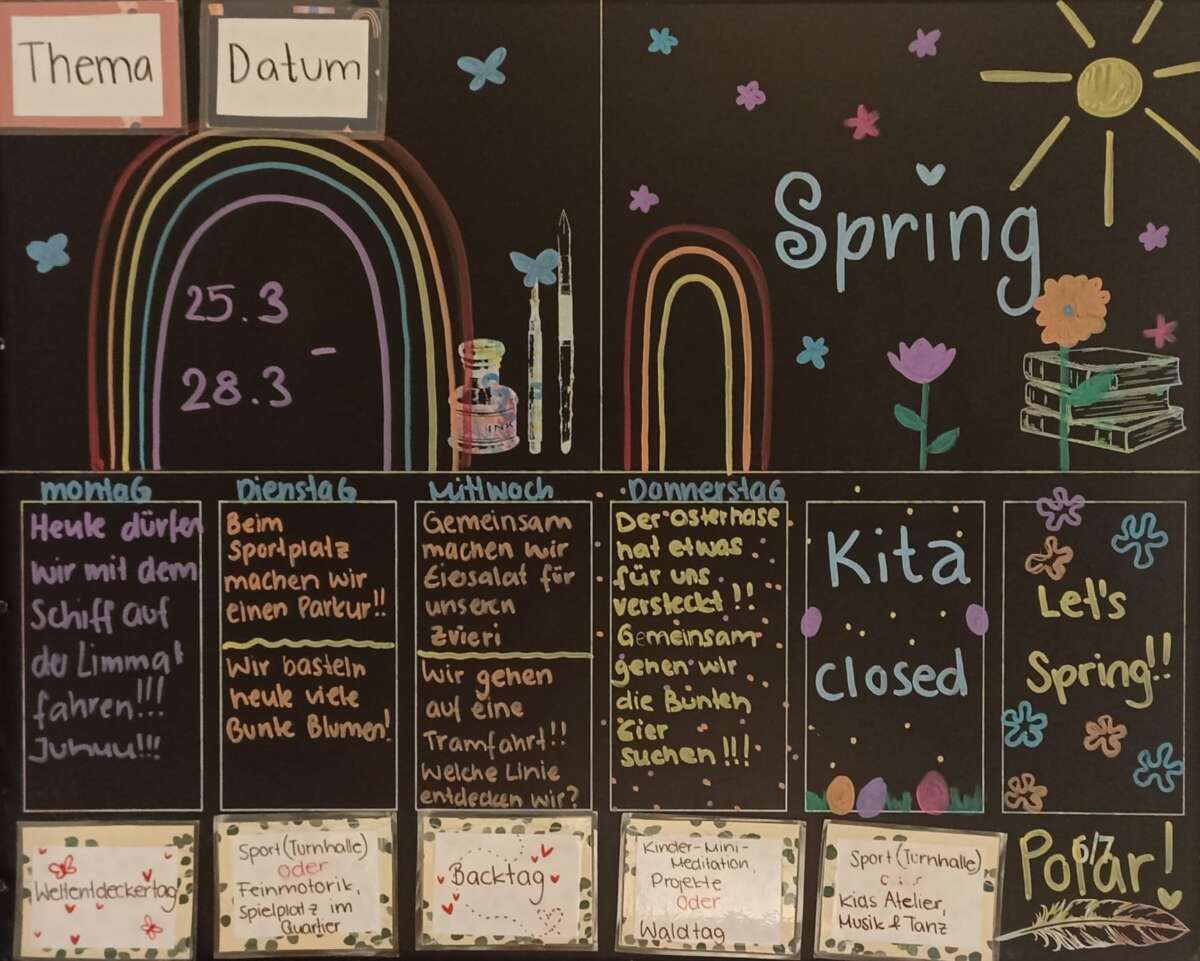 Thema
Datum
25.3
-
28.3
INK
Spring
Montag
Heute dürfen
wir mit dem
Schiff auf
der Limmat
fahren!!!
Juhuu!!!
Dienstag
Beim
Sportplatz
machen wir
einen Parkur!!
Wir basteln
heute viele
Bunte Blumen!
Mittwoch
Gemeinsam
machen wir
Eiersalat für
unseren
Zvieri
Wir gehen
auf eine
Tramfahrt!!
Welche Linie
entdecken wir?
Donnerstag
Der Osterhase
hat etwas
für uns
versteckt!!
Gemeinsam
gehen wir
die Bunten
Eier
suchen!!!
Kita
closed
Let's
Spring!!
Weltentdeckertag
Sport (Turnhalle)
oder
Feinmotorik,
Spielplatz im
Quartier
Backtag
Kinder-Mini-
Meditation,
Projekte
oder
Waldtag
Sport (Turnhalle)
Kids Atelier,
Musik & Tanz
Polar!
6/7